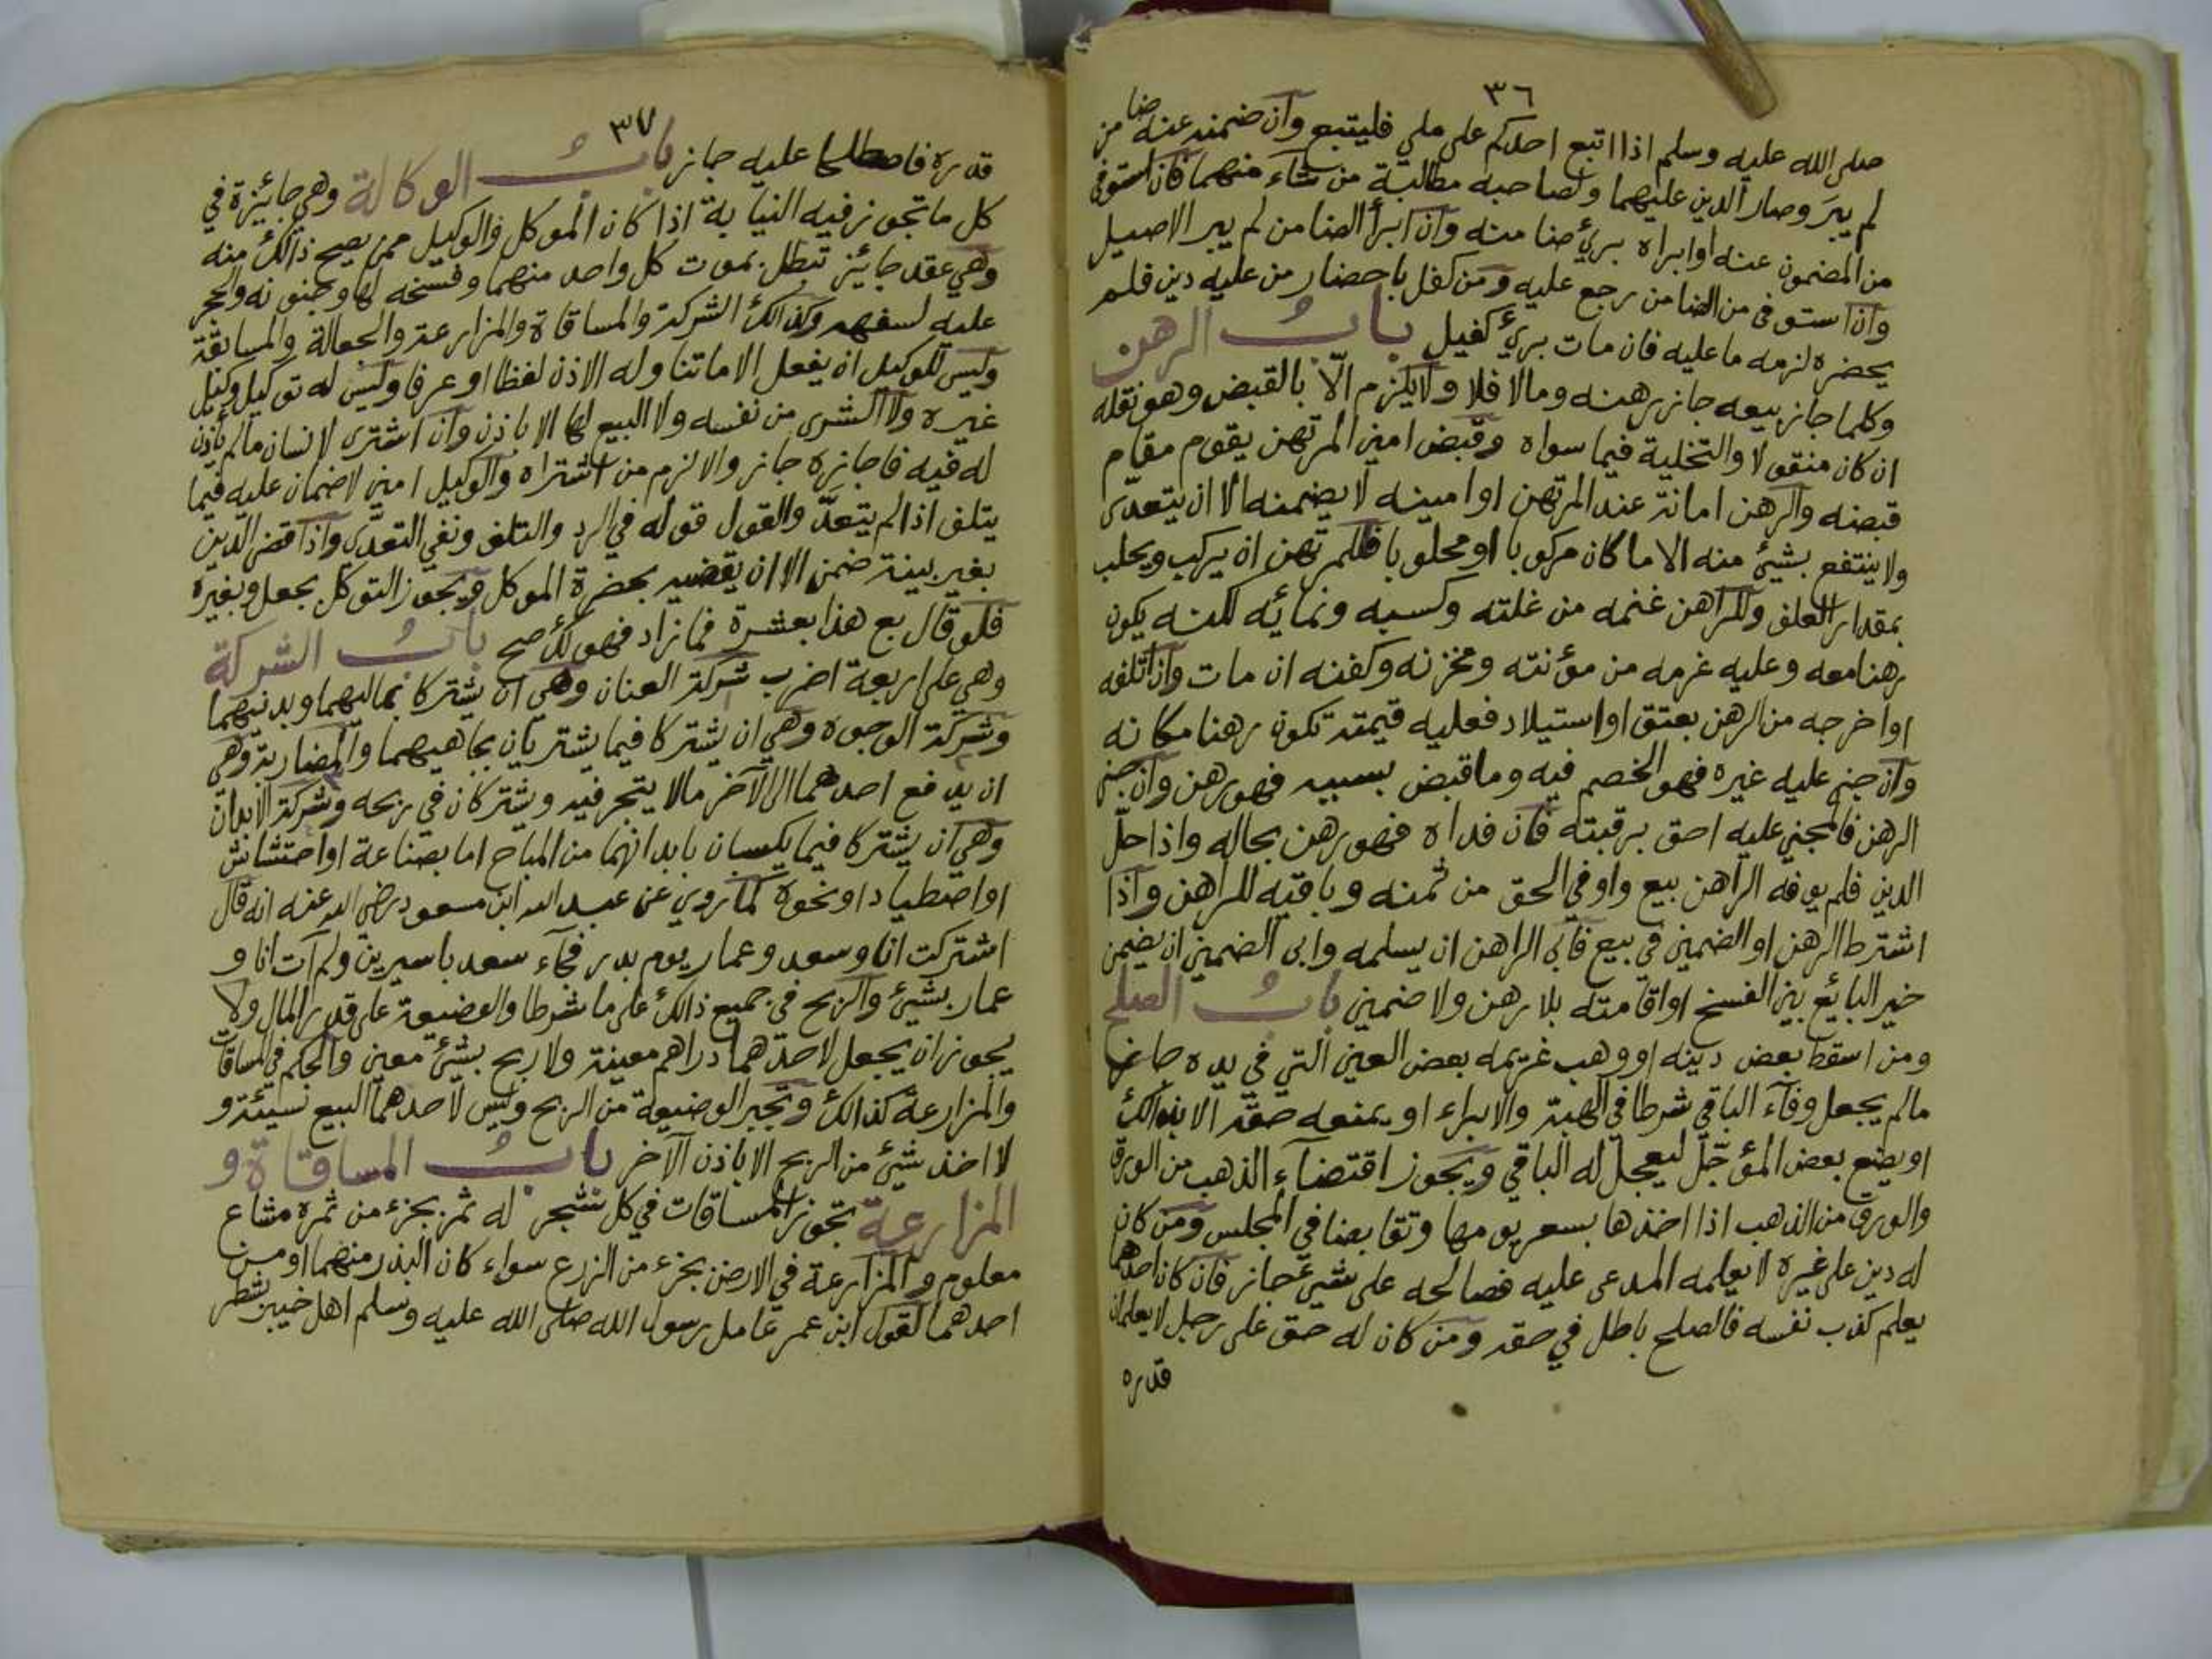 ٣٦
صلى الله عليه وسلم اذا اتبع احدكم على ملي فليتبع وان ضمنه عنه ضامن
لم يبرَ وصار الدين عليهما ولصاحبه مطالبة من شاء منهما فان استوفى
من المضمون عنه او ابراه برئ ضامنه وان ابرأ الضامن لم يبر الاصيل
وان استوفى من الضامن رجع عليه ومن كفل باحضار من عليه دين فلم
يحضره لزمه ما عليه فان مات برئ كفيل باب الرهن
وكلما جاز بيعه جاز رهنه ومالا فلا ولا يلزم الّا بالقبض وهو نقله
ان كان منقولا والتخلية فيما سواه وقبض امين المرتهن يقوم مقام
قبضه والرهن امانة عند المرتهن او امينه لا يضمنه الا ان يتعدّى
ولا ينتفع بشيئ منه الا ما كان مركوبا او محلوبا فللمرتهن ان يركب ويحلب
بمقدار العلف وللراهن غنمه من غلته وكسبه ونمائه لكنه يكون
رهنا معه وعليه غرمه من مؤنته ومخزنه وكفنه ان مات وان اتلفه
او اخرجه من الرهن بعتق او استيلاد فعليه قيمته تكون رهنا مكانه
وان جني عليه غيره فهو الخصم فيه وما قبض بسببه فهو رهن وان جنى
الرهن فالمجني عليه احق برقبته فان فداه فهو رهن بحاله واذا حلّ
الدين فلم يوفه الراهن بيع واوفي الحق من ثمنه وباقيه للراهن واذا
اشترط الرهن او الضمين في بيع فأبى الراهن ان يسلمه وابى الضمين ان يضمن
خير البائع بين الفسخ او اقامته بلا رهن ولا ضمين باب الصلح
ومن اسقط بعض دينه او وهب غريمه بعض العين التي في يده جاز
مالم يجعل وفآء الباقي شرطا في الهبة والابراء او يمنعه حقه الا بذالك
او يضع بعض المؤجّل ليعجل له الباقي ويجوز اقتضآء الذهب من الورق
والورق من الذهب اذا اخذها بسعر يومها وتقابضا في المجلس ومن كان
له دين على غيره لا يعلمه المدعى عليه فصالحه على شيئ جاز فان كان احدهما
يعلم كذب نفسه فالصلح باطل في حقه ومن كان له حق على رجل لا يعلمان
قدره
٣٧
قدره فاصطلحا عليه جاز باب الوكالة وهي جائيزة في
كل ما تجوز فيه النيابة اذا كان الموكل والوكيل ممن يصح ذالك منه
وهي عقد جائيز تبطل بموت كل واحد منهما وفسخه لها وجنونه والحجر
عليه لسفه وكذالك الشركة والمساقاة والمزارعة والجعالة والمسابقة
وليس للوكيل ان يفعل الا ماتناوله الاذن لفظا او عرفا وليس له توكيل وكيل
غيره ولا الشرى من نفسه ولا البيع لها الا باذن وان اشترى لانسان مالم يأذن
له فيه فاجازه جاز والا لزم من اشتراه والوكيل امين لا ضمان عليه فيما
يتلف اذا لم يتعدّ والقول قوله في الرد والتلف ونفي التعدّى واذا قضى الدين
بغير بينة ضمن الا ان يقضيه بحضرة الموكل ويجوز التوكل بجعل وبغيره
فلو قال بع هذا بعشرة فما زاد فهو لك صح باب الشركة
وهي على اربعة اضرب شركة العنان وهي ان يشتركا بماليهما وبدنيهما
وشركة الوجوه وهي ان يشتركا فيما يشتريان بجاهيهما والمضاربة وهي
ان يدفع احدهما الى الآخر مالا يتجر فيه ويشتركان في ربحه وشركة الابدان
وهي ان يشتركا فيما يكسبان بابدانهما من المباح اما بصناعة او احتشاش
او اصطياد او نحوه كما روي عن عبد الله ابن مسعود رضي الله عنه انه قال
اشتركت انا وسعد وعمار يوم بدر فجآء سعد باسيرين ولم آت انا و
عمار بشيئ والربح في جميع ذالك على ما شرطا والوضيعة على قدر المال ولا
يجوز ان يجعل لاحدهما دراهم معينة ولا ربح بشيئ معين والحكم في المساقات
والمزارعة كذالك وتجبر الوضيعة من الربح وليس لاحدهما البيع نسيئة و
لا اخذ شيئ من الربح الا باذن الآخر باب المساقاة و
المزارعة تجوز المساقات في كل شجر له ثمر بجزء من ثمره مشاع
معلوم والمزارعة في الارض بجزء من الزرع سواء كان البذر منهما او من
احدهما لقول ابن عمر عامل رسول الله صلى الله عليه وسلم اهل خيبر بشطر